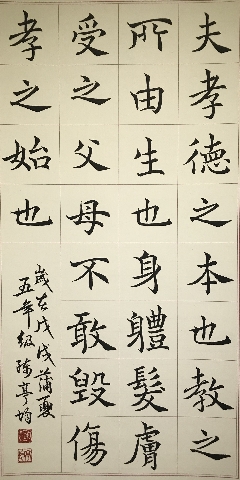 夫孝德之本也教之
所由生也身軆髮膚
受之父母不敢毀傷
孝之始也
歲在戊戌蒲夏
五年級